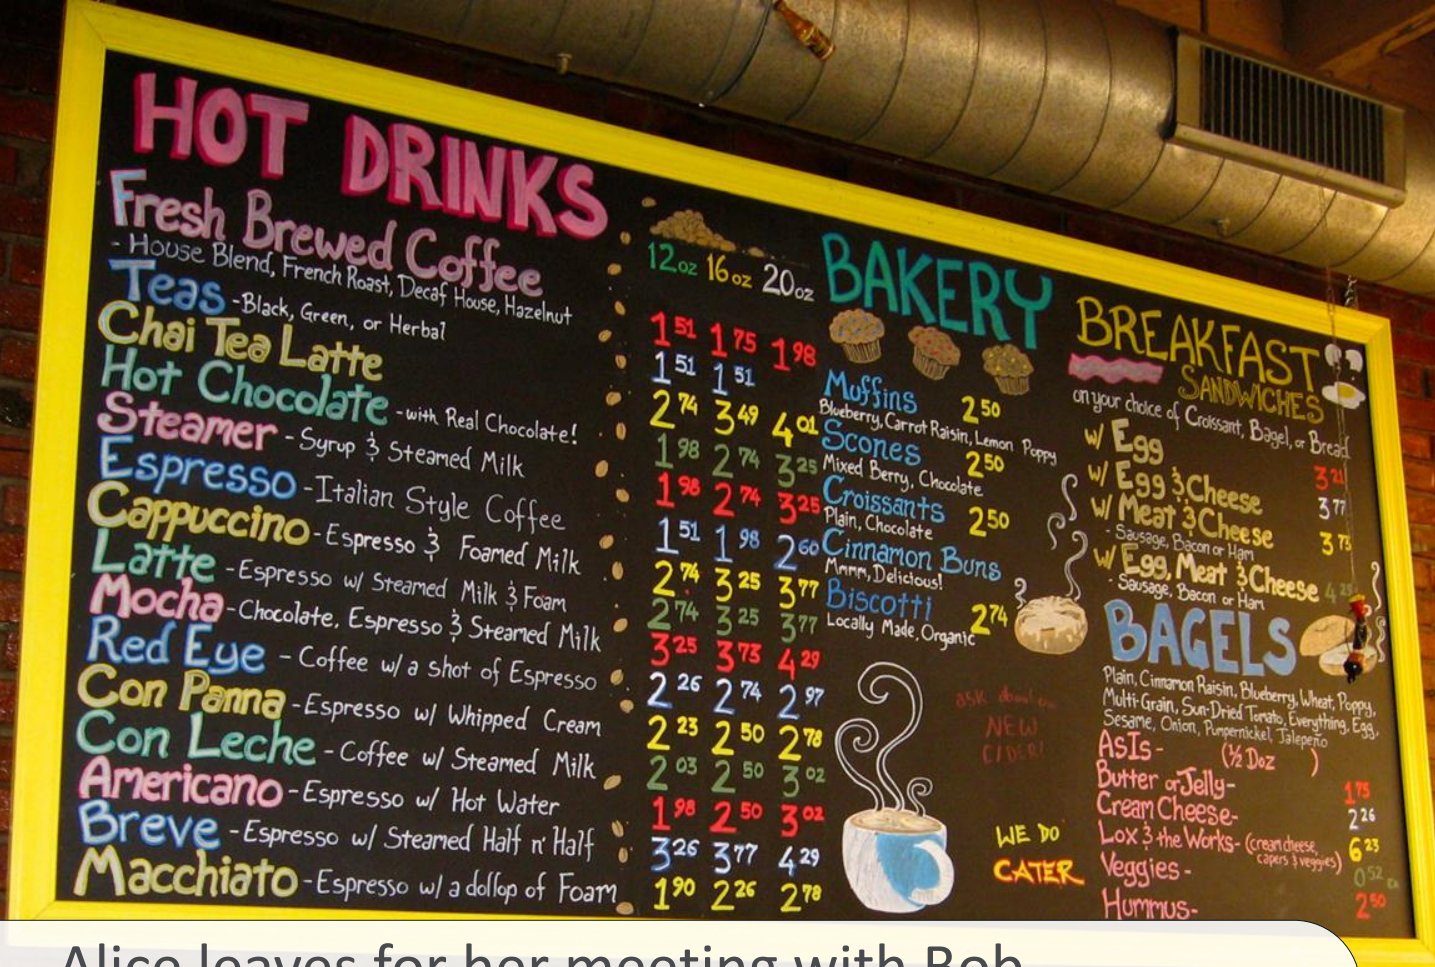 HOT DRINKS
Fresh Brewed Coffee
- House Blend, French Roast, Decaf House, Hazelnut
Teas - Black, Green, or Herbal
Chai Tea Latte
Hot Chocolate - with Real Chocolate!
Steamer - Syrup & Steamed Milk
Espresso - Italian Style Coffee
Cappuccino - Espresso & Foamed Milk
Latte - Espresso w/ Steamed Milk & Foam
Mocha - Chocolate, Espresso & Steamed Milk
Red Eye - Coffee w/ a shot of Espresso
Con Panna - Espresso w/ Whipped Cream
Con Leche - Coffee w/ Steamed Milk
Americano - Espresso w/ Hot Water
Breve - Espresso w/ Steamed Half n' Half
Macchiato - Espresso w/ a dollop of Foam
12oz 16oz 20oz
1 51 1 75 1 98
1 51 1 51
2 74 3 49 4 01
1 98 2 74 3 25
1 98 2 74 3 25
1 51 1 98 2 60
2 74 3 25 3 77
2 74 3 25 3 77
3 25 3 73 4 29
2 26 2 74 2 97
2 23 2 50 2 78
2 03 2 50 3 02
1 98 2 50 3 02
3 26 3 77 4 29
1 90 2 26 2 78
BAKERY
Muffins 2 50
Blueberry, Carrot Raisin, Lemon Poppy
Scones 2 50
Mixed Berry, Chocolate
Croissants 2 50
Plain, Chocolate
Cinnamon Buns
Mmmm, Delicious!
Biscotti 2 74
Locally Made, Organic
ask about our
NEW
CIDER!
WE DO
CATER
BREAKFAST
SANDWICHES
on your choice of Croissant, Bagel, or Bread
w/ Egg 3 21
w/ Egg & Cheese 3 77
w/ Meat & Cheese 3 73
- Sausage, Bacon or Ham
w/ Egg, Meat & Cheese
- Sausage, Bacon or Ham
BAGELS
Plain, Cinnamon Raisin, Blueberry, Wheat, Poppy,
Multi-Grain, Sun-Dried Tomato, Everything, Egg,
Sesame, Onion, Pumpernickel, Jalepeño
AsIs - (½ Doz )
Butter or Jelly - 1 75
Cream Cheese - 2 26
Lox & the Works - (cream cheese, capers & veggies) 6 23
Veggies - 0 52
Hummus - 2 50
Alice leaves for her meeting with Bob